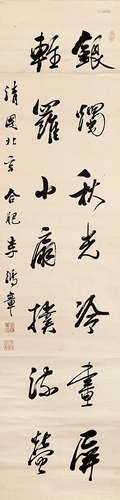 銀燭秋光冷畫屏
輕羅小扇撲流螢
清國北京合肥李鴻章